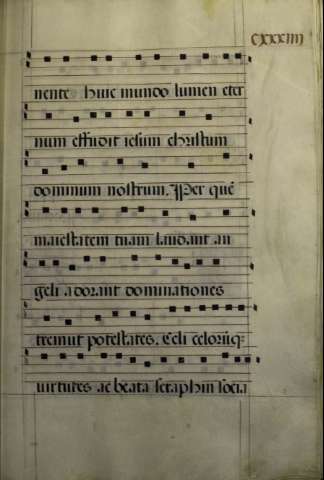 cxxxiiii
nente huic mundo lumen eter
num effudit iesum christum
dominum nostrum. Per quē
maiestatem tuam laudant an
geli adorant dominationes
tremut potestates. Celi celorūq;
virtutes ac beata seraphin socia